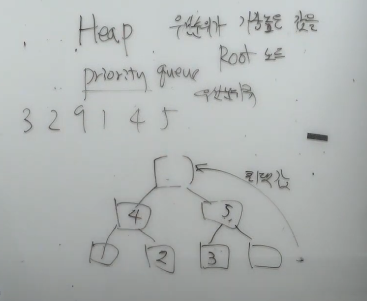 Heap 우선순위가 가장높은 값은
Root 노드
priority queue
우선순위큐
3 2 9 1 4 5
최댓값
4 5
2 3